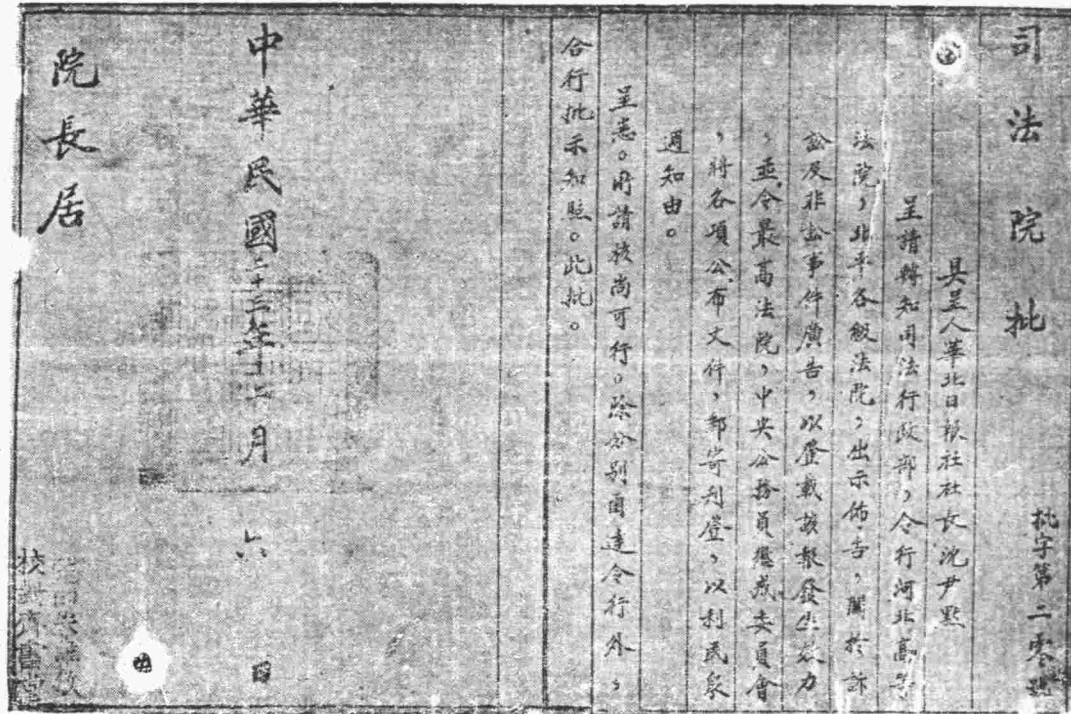 司法院批
批字第二零號
具呈人華北日報社社長沈尹默
呈請轉知司法行政部,令行河北高等
法院,北平各級法院,出示佈告,關於訴
訟及非訟事件廣告,以登載該報發生效力
,並令最高法院,中央公務員懲戒委員會
,將各項公布文件,郵寄刊登,以利民眾
週知由。
呈悉。所請核尚可行。除分別函達令行外,
合行批示知照。此批。
中華民國二十三年十二月六日
院長居